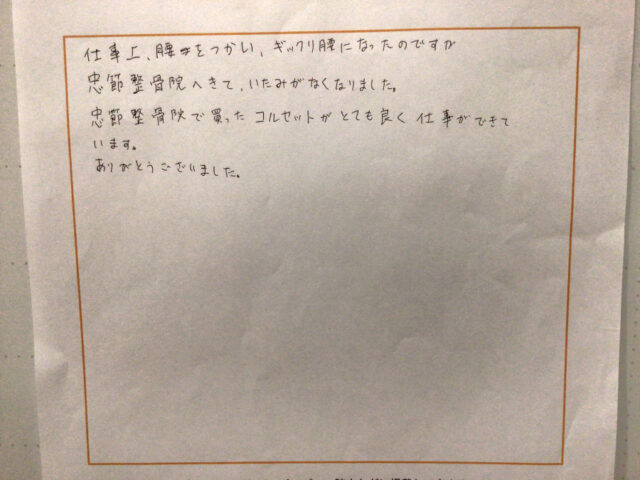 仕事上、腰をつかい、ギックリ腰になったのですが
忠節整骨院へきて、いたみがなくなりました。
忠節整骨院で買ったコルセットがとても良く仕事ができて
います。
ありがとうございました。